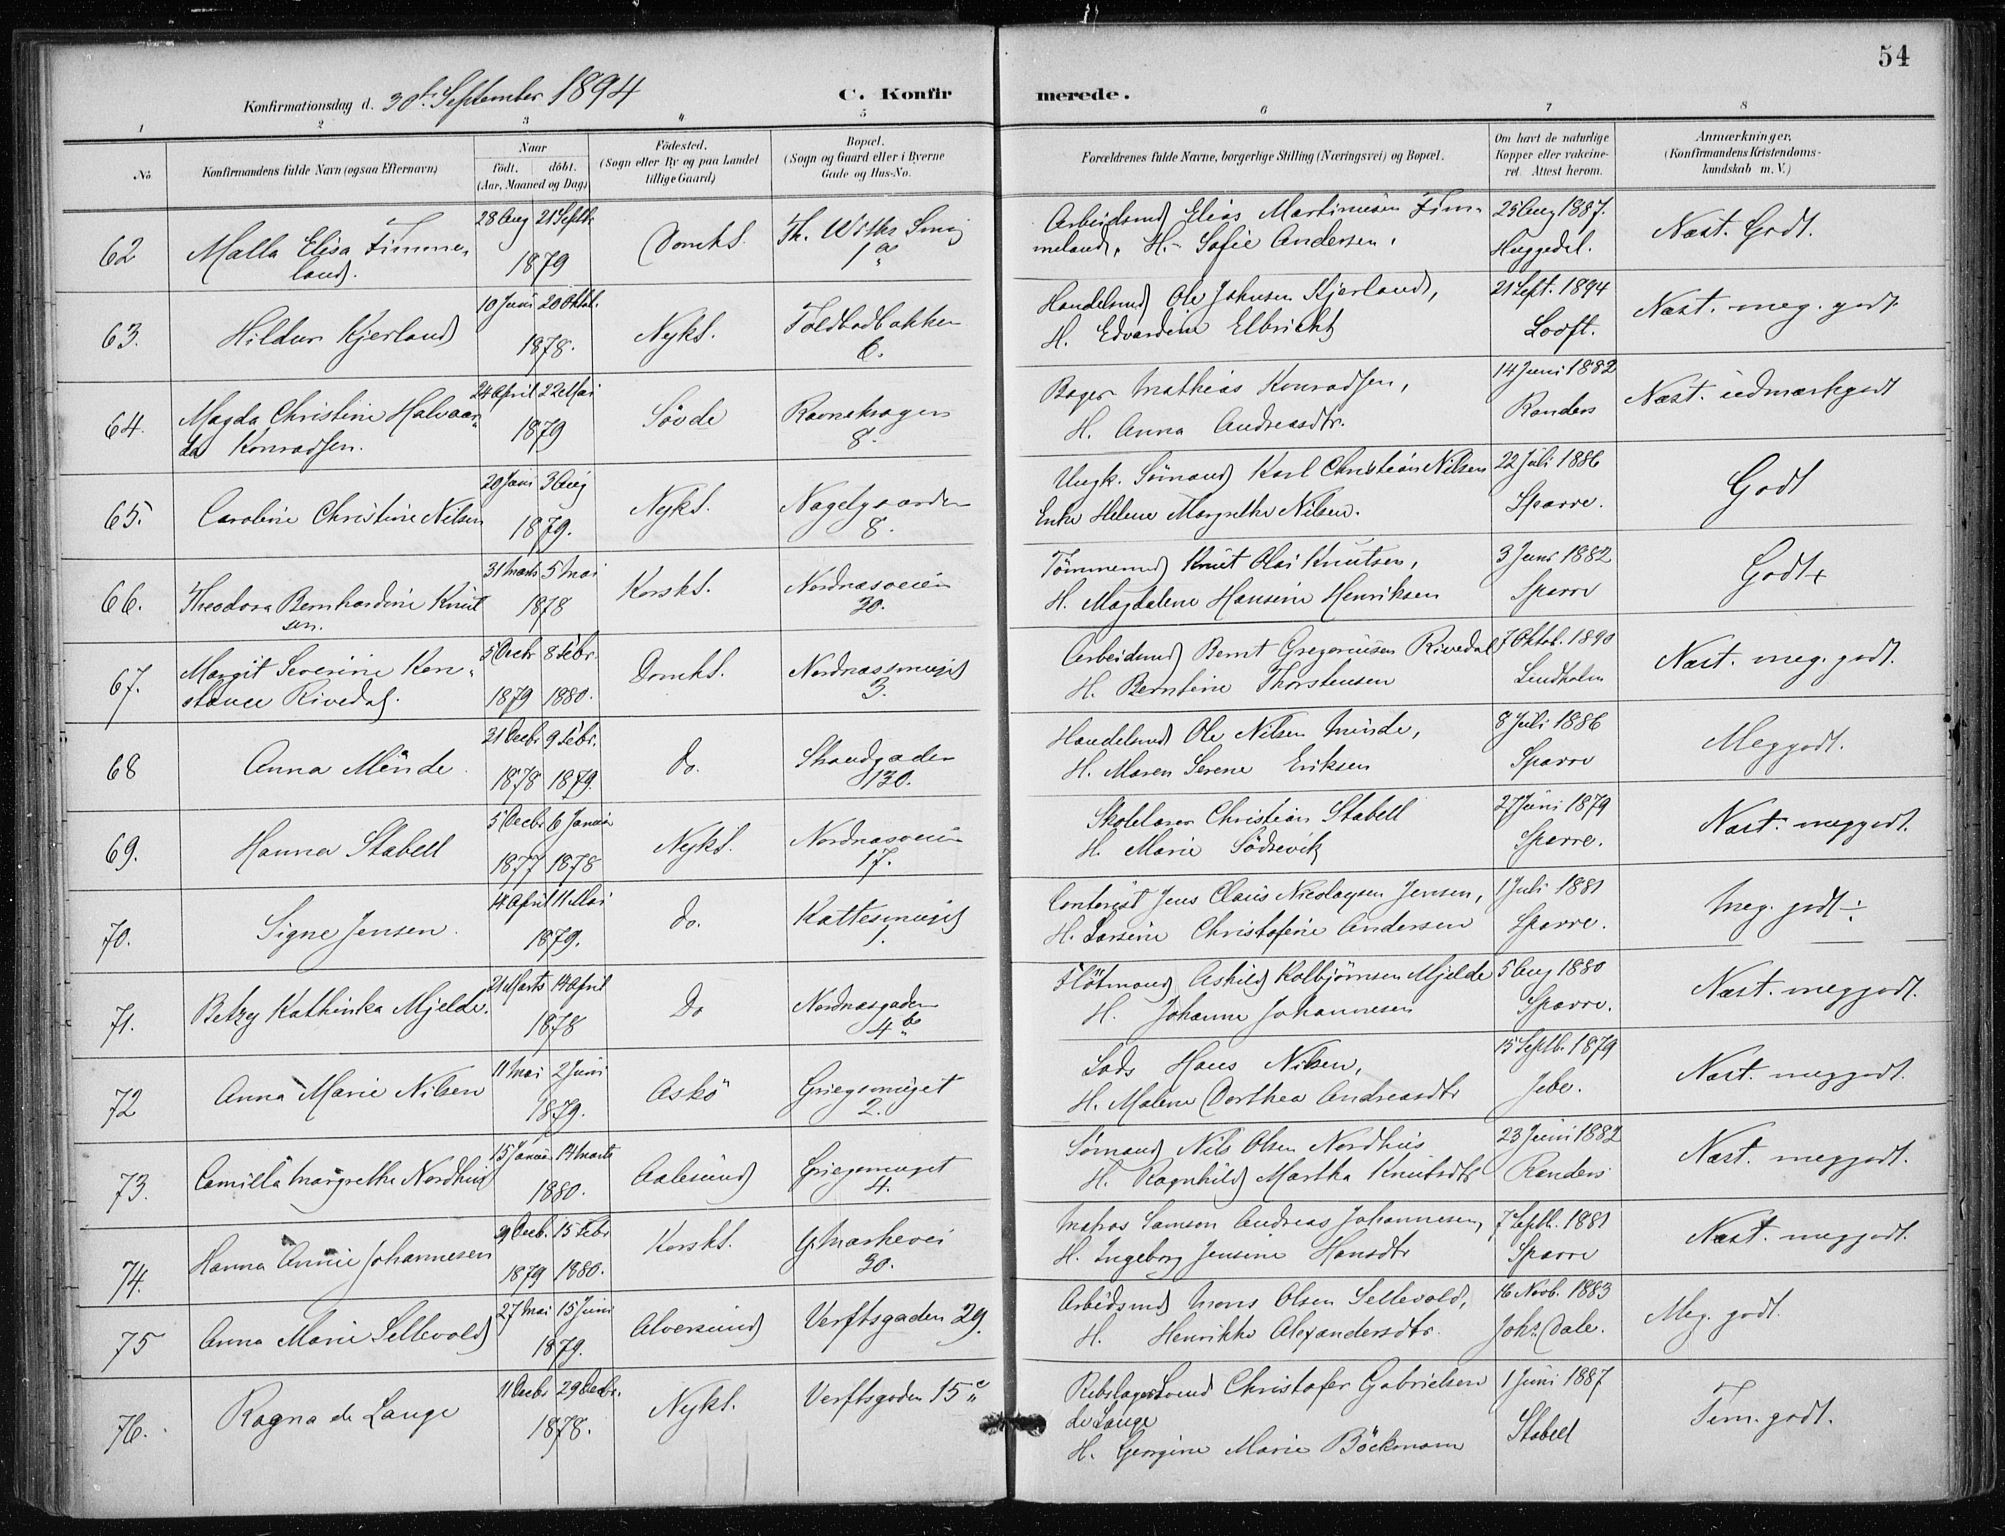 54
Konfirmationsdag d. 30te September 1894
C. Konfirmerede.
1 2 3 4 5 6 7 8
No
Konfirmandens fulde Navn (ogsaa Efternavn)
Naar
födt. döbt.
(Aar, Maaned og Dag)
Födested.
(Sogn eller By og paa Landet
tillige Gaard)
Bopæl.
(Sogn og Gaard eller i Byerne
Gade og Hus-No.
Forældrenes fulde Navne, borgerlige Stilling (Næringsvei) og Bopæl.
Om havt de naturlige
Kopper eller vakcine-
ret. Attest herom.
Anmærkninger,
(Konfirmandens Kristendoms-
kundskab m. V.)
62 Malla Elisa Timme-
land. 28 Aug 21 Septb. 1879 Domks. Th. Withs Smug
1a Arbeidsmd Elias Martinusen Tim-
meland, H. Sofie Andersen. 25 Aug 1887.
Heggedal. Næst. Godt.
63. Hildur Kjerland 10 Juni 20 Oktb. 1878. Nyks. Toldbodbakken
6. Handelsmd Ole Johnsen Kjerland,
H. Edvardine Elbricht 21 Sept. 1894
Looft. Næst. meg. godt.
64. Magda Christine Halvar-
da Konradsen. 24 April 22 Mai 1879 Søvde Ravnekrogen
8. Bager Mathias Konradsen,
H. Anna Andreasdtr. 14 Juni 1882
Randers Næst. udmærkgodt
65. Caroline Christine Nilsen 20 Juni 3 Aug 1879. Nyks. Nagelgaarden
8. Ungk. Sømand Karl Christian Nilsen
Enke Helene Margrethe Nilsen. 22 Juli 1886
Sparre. Godt
66. Theodora Bernhardine Knut
sen. 31 Marts 5 Mai 1878 Korsks. Nordnæsveien
20. Tømmermd Knut Olai Knutsen,
H. Magdalene Hansine Henriksen 3 Juni 1882
Sparre Godt+
67. Margit Severine Kon-
stance Rivedal. 5 Decbr 8 Febr. 1879 1880. Domks. Nordnæssmuget
3. Arbeidsmd Bernt Gregoriusen Rivedal
H. Berntine Thorstensen 7 Oktob. 1890
Lindholm Næst. meg. godt.
68 Anna Minde 21 Decbr 9 Febr. 1878 1879. Do. Strandgaden
130. Handelsmd Ole Nilsen Minde,
H. Maren Serene Eriksen 8 Juli 1886
Sparre Meggodt.
69. Hanna Stabell 5 Decbr 6 Januar 1877 1878 Nyks. Nordnæsveien
17. Skolelærer Christian Stabell
H. Marie Södrevik 27 Juni 1879
Sparre. Næst. meggodt.
70. Signe Jensen. 14 April 11 Mai 1879. Do. Kattesmuget
1. Contorist Jens Claus Nicolaysen Jensen,
H. Larsine Christofine Andersen 1 Juli 1881
Sparre. Meg. godt ÷
71. Betzy Kathinka Mjelde. 21 Marts 14 April 1878 Do Nordnæsgaden
4b Flötmand Askild Kolbjørnsen Mjelde
H. Johanne Johannesen 5 Aug 1880
Sparre. Næst. meggodt.
72 Anna Marie Nilsen 11 Mai 2 Juni 1879. Askö Griegsmuget
2. Lods Hans Nilsen,
H. Malene Dorthea Andreasdtr 15 Septb. 1879
Jebe. Næst. meggodt.
73. Camilla Margrethe Nordhus 15 Januar 14 Marts 1880. Aalesund Griegsmuget
4. Sømand Nils Olsen Nordhus
H. Ragnhild Martha Knutsdtr 23 Juni 1882
Randers Næst. meggodt.
74. Hanna Annie Johannesen 9 Decb. 15 Febr 1879 1880. Korsks. Markevei
20. Matros Samson Andreas Johannesen,
H. Ingeborg Jensine Hansdtr 7 Septb. 1881
Sparre Næst. meggodt.
75 Anna Marie Sellevold 27 Mai 15 Juni 1879. Alversund Verftsgaden 29. Arbeidsmd Mons Olsen Sellevold,
H. Henrikke Alexandersdtr. 16 Novb. 1883
Johs Dale. Meg. godt
76. Ragna de Lange 11 Decbr 29 Decbr. 1878. Nyks. Verftsgaden 15c Rebslagersvend Christofer Gabrielsen
de Lange
H. Georgine Marie Böckmann 1 Juni 1887
Stabell Tem. godt.